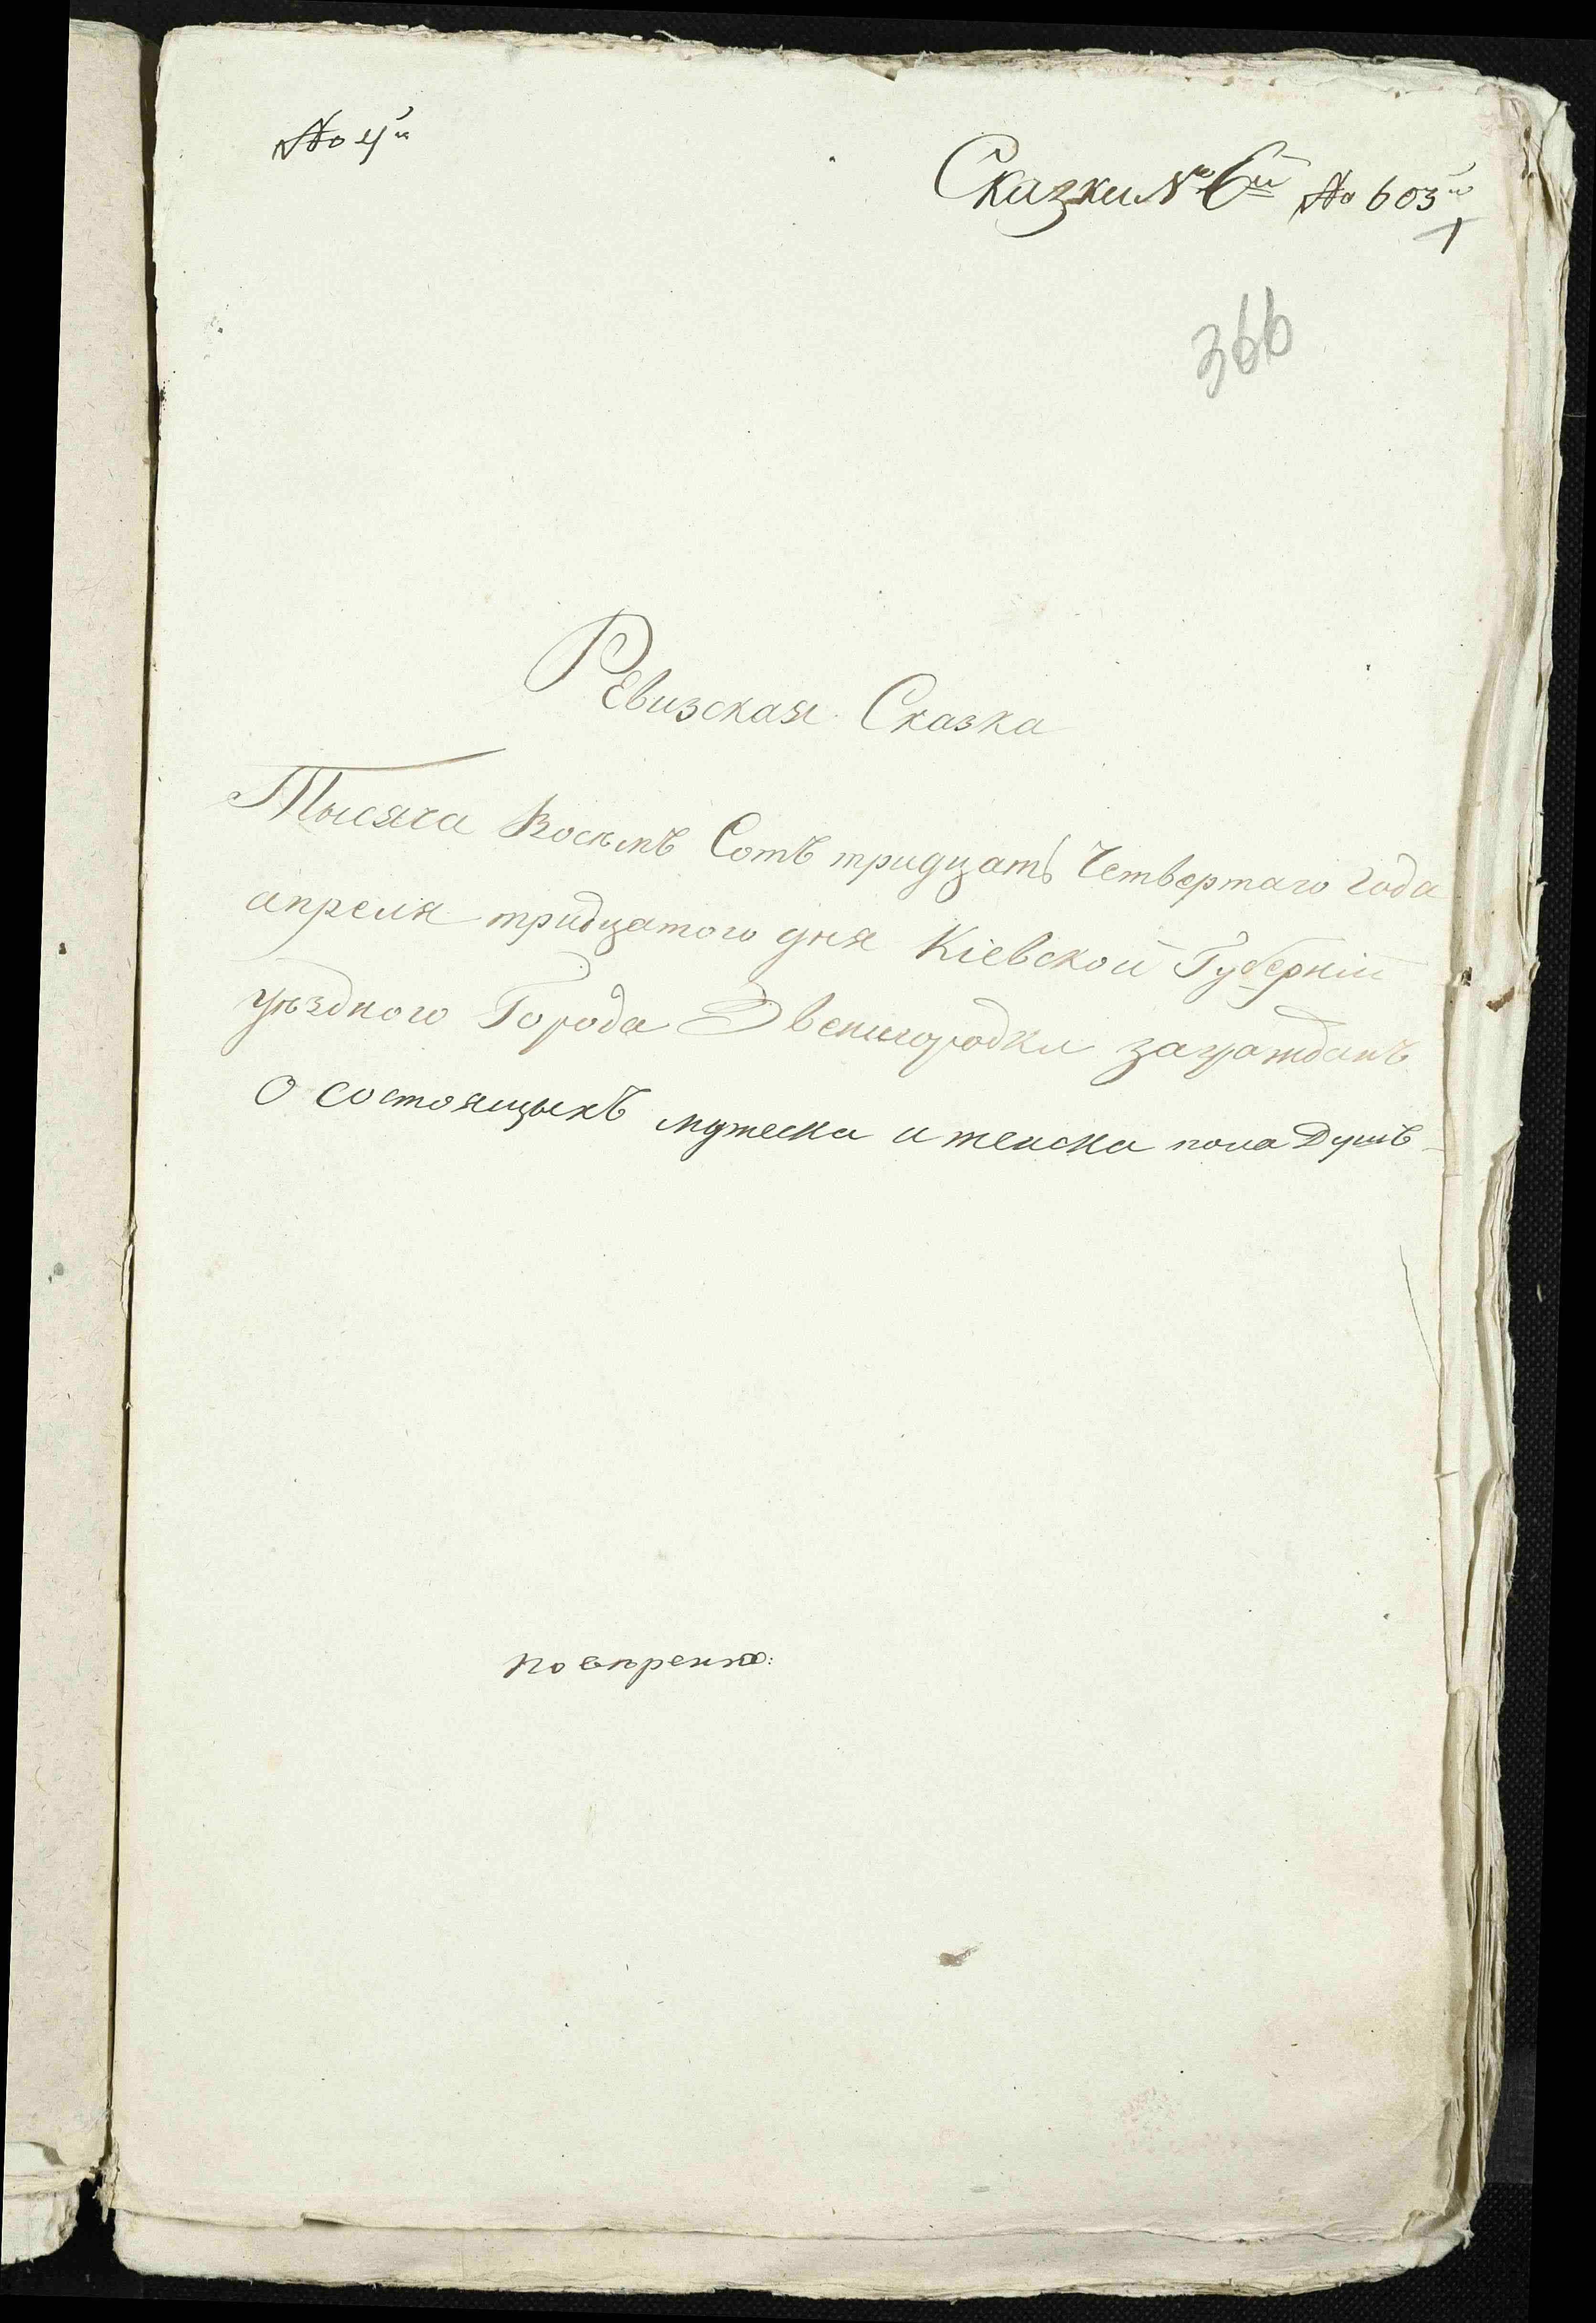 № 4й
Сказки № 6й № 603й
366
Ревизская Сказка
Тысяча Восемъ Сотъ тридцать Четвертаго Года
апреля тридцатого дня Кіевской Губерніи
уѣздного Города Звенигородки заграждан
О состоящыхъ мужеска и женска пола Душъ
по впрenно: